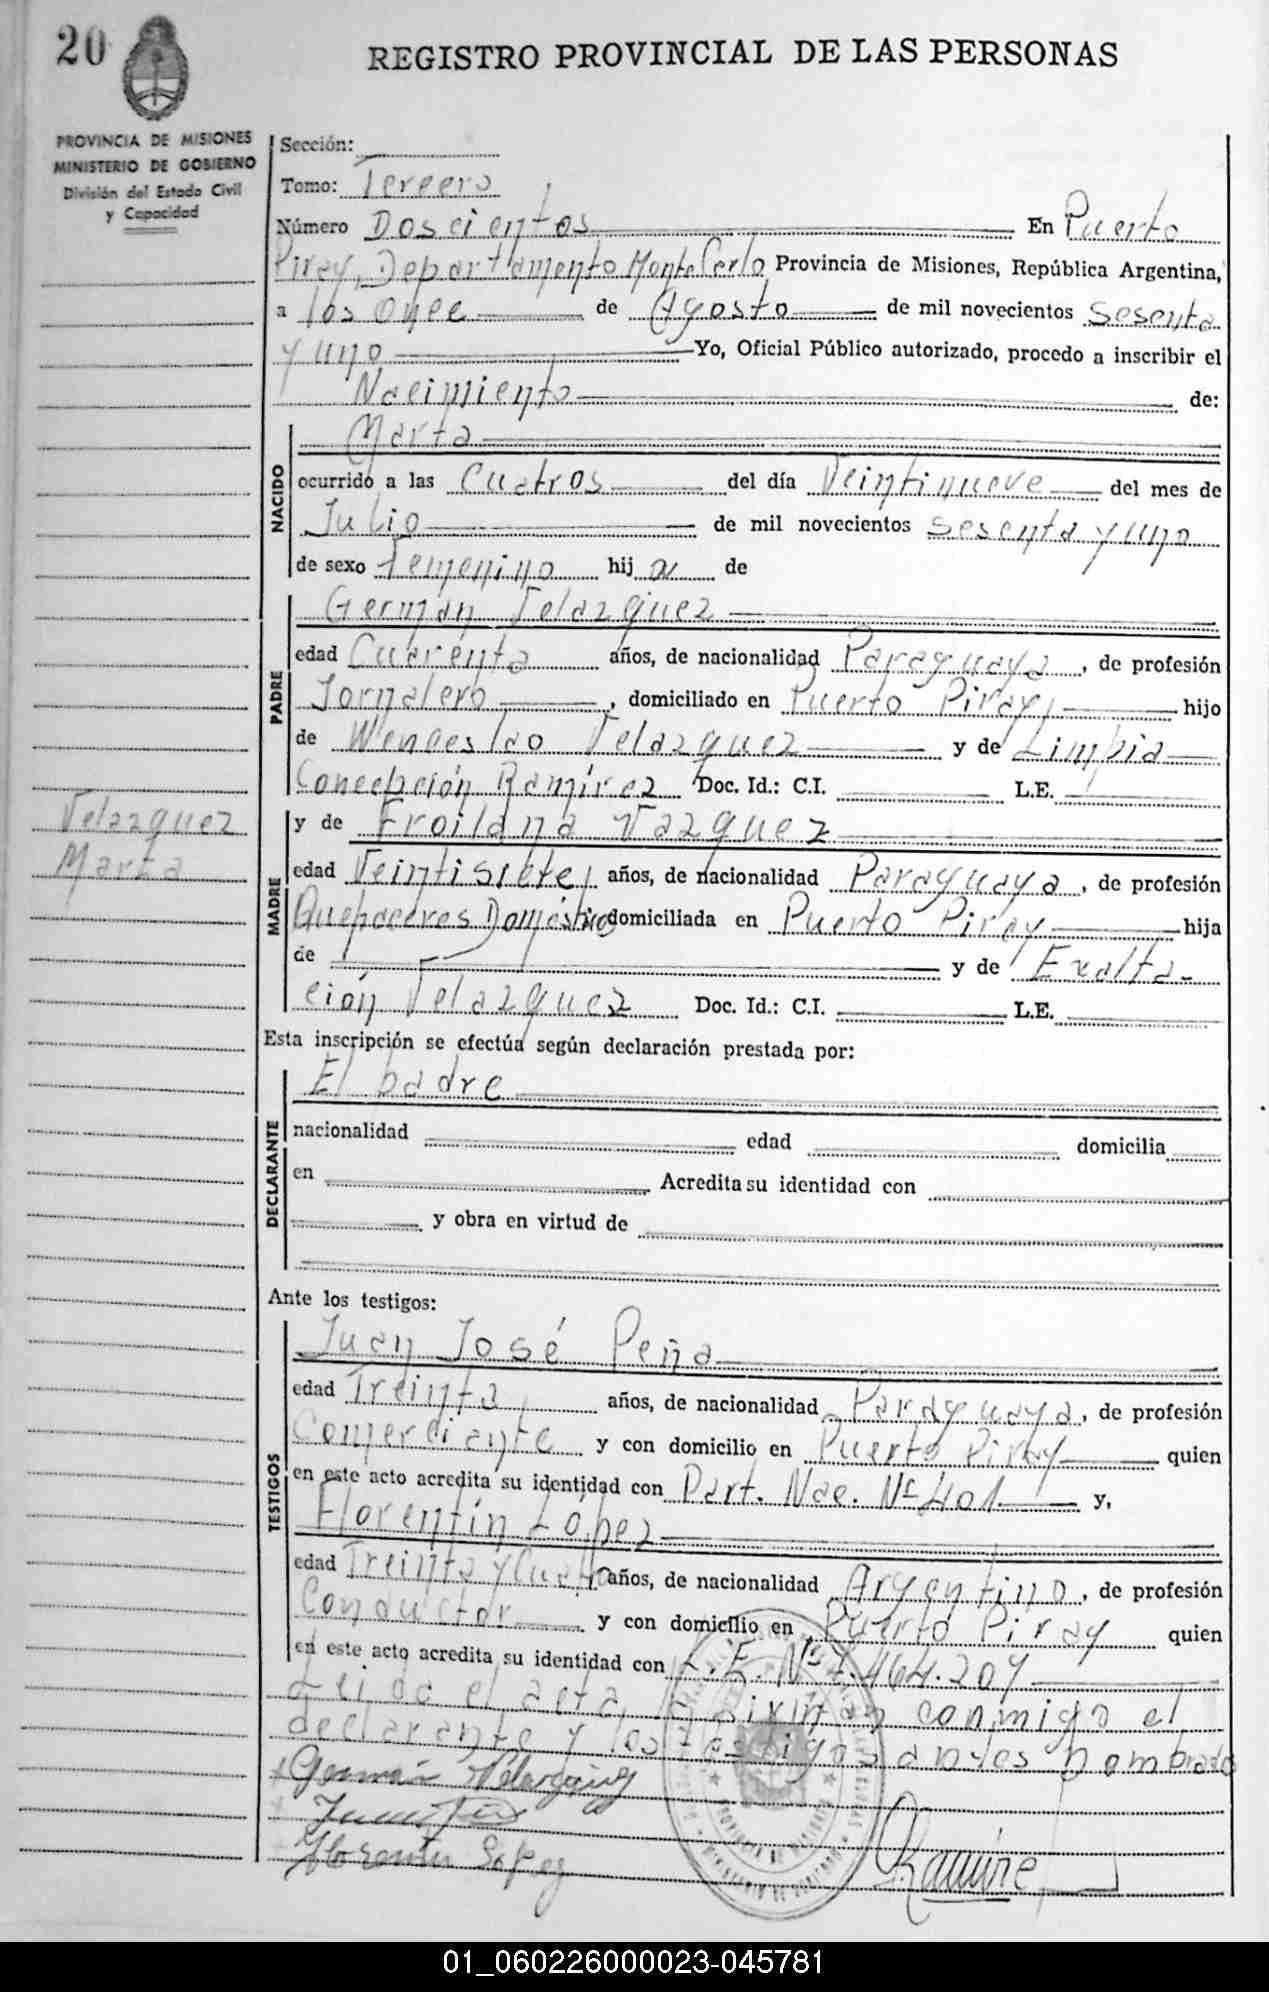 20
REGISTRO PROVINCIAL DE LAS PERSONAS
PROVINCIA DE MISIONES
MINISTERIO DE GOBIERNO
División del Estado Civil
y Capacidad
Sección:
Tomo: Tercero
Número Doscientos En Puerto
Piray, Departamento Monte Carlo Provincia de Misiones, República Argentina,
a los once de Agosto de mil novecientos sesenta
y uno Yo, Oficial Público autorizado, procedo a inscribir el
Nacimiento de:
Marta
NACIDO
ocurrido a las Cuatros del día Veintinueve del mes de
Julio de mil novecientos sesenta y uno
de sexo Femenino hij a de
Germán Velazquez
PADRE
edad Cuarenta años, de nacionalidad Paraguaya, de profesión
Jornalero, domiciliado en Puerto Piray, hijo
de Wenceslao Velazquez y de Limpia
Concepción Ramírez Doc. Id.: C.I. L.E.
Velazquez
Marta
y de Froilana Vazquez
MADRE
edad Veintisiete años, de nacionalidad Paraguaya, de profesión
Quehaceres Domésticos domiciliada en Puerto Piray hija
de y de Exalta-
ción Velazquez Doc. Id.: C.I. L.E.
Esta inscripción se efectúa según declaración prestada por:
El padre
DECLARANTE
nacionalidad edad domicilia
en Acredita su identidad con
y obra en virtud de
Ante los testigos:
Juan José Peña
TESTIGOS
edad Treinta años, de nacionalidad Paraguaya, de profesión
Comerciante y con domicilio en Puerto Piray quien
en este acto acredita su identidad con Part. Nac. Nº 401 y,
Florentín López
edad Treinta y Cuatro años, de nacionalidad Argentino, de profesión
Conductor y con domicilio en Puerto Piray quien
en este acto acredita su identidad con L.E. Nº 7.464.207
Leida el acta, la firman conmigo el
declarante y los testigos antes nombrado
Germán Velazquez
Florentin Lopez
Ramire
PROVINCIA DE MISIONES
MINISTERIO DE GOBIERNO
01_060226000023-045781